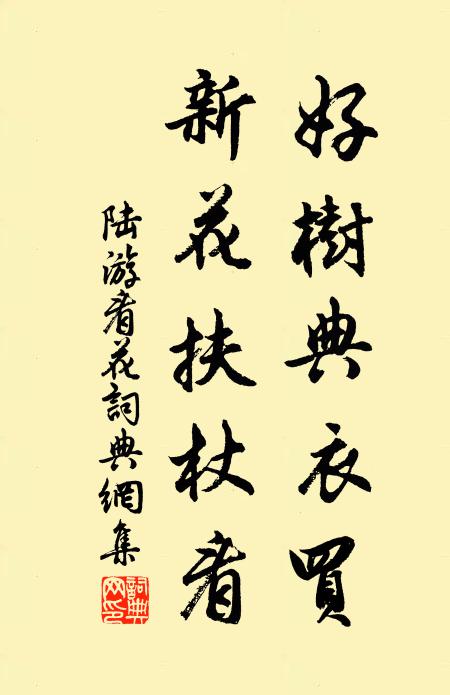 好樹典衣買
新花扶杖看
陆游看花詞典網集
詞典網印